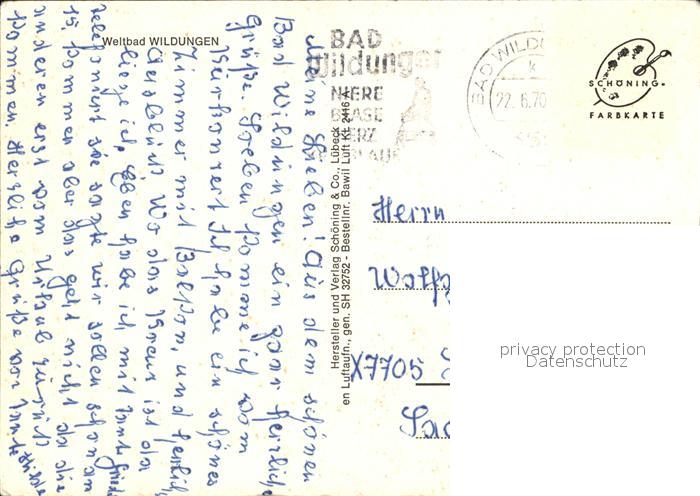 Weltbad WILDUNGEN
Meine Lieben! Aus dem schönen
Bad Wildungen ein paar herzliche
Grüße. Soeben komme ich vom
Kurkonzert Ich habe ein schönes
Zimmer mit Balkon, und herrlich
Ausblick. Wo das Kreuz ist da
liege ich. Eben habe ich mit
telefoniert sie sagte wir sollen schon am
15. kommen aber das geht nicht da die
anderen erst vom Urlaub zurück
kommen. Herzliche Grüße von
BAD
Wildungen
NIERE
BLASE
HERZ
KREISLAUF
BAD WILDUN
22. 6. 76
SCHÖNING
FARBKARTE
Hersteller und Verlag Schöning & Co., Lübeck
en Luftaufn., gen. SH 32752 - Bestellnr. Bawil Luft Kt 2416
Herrn
Wolfg
X7705
privacy protection
Datenschutz